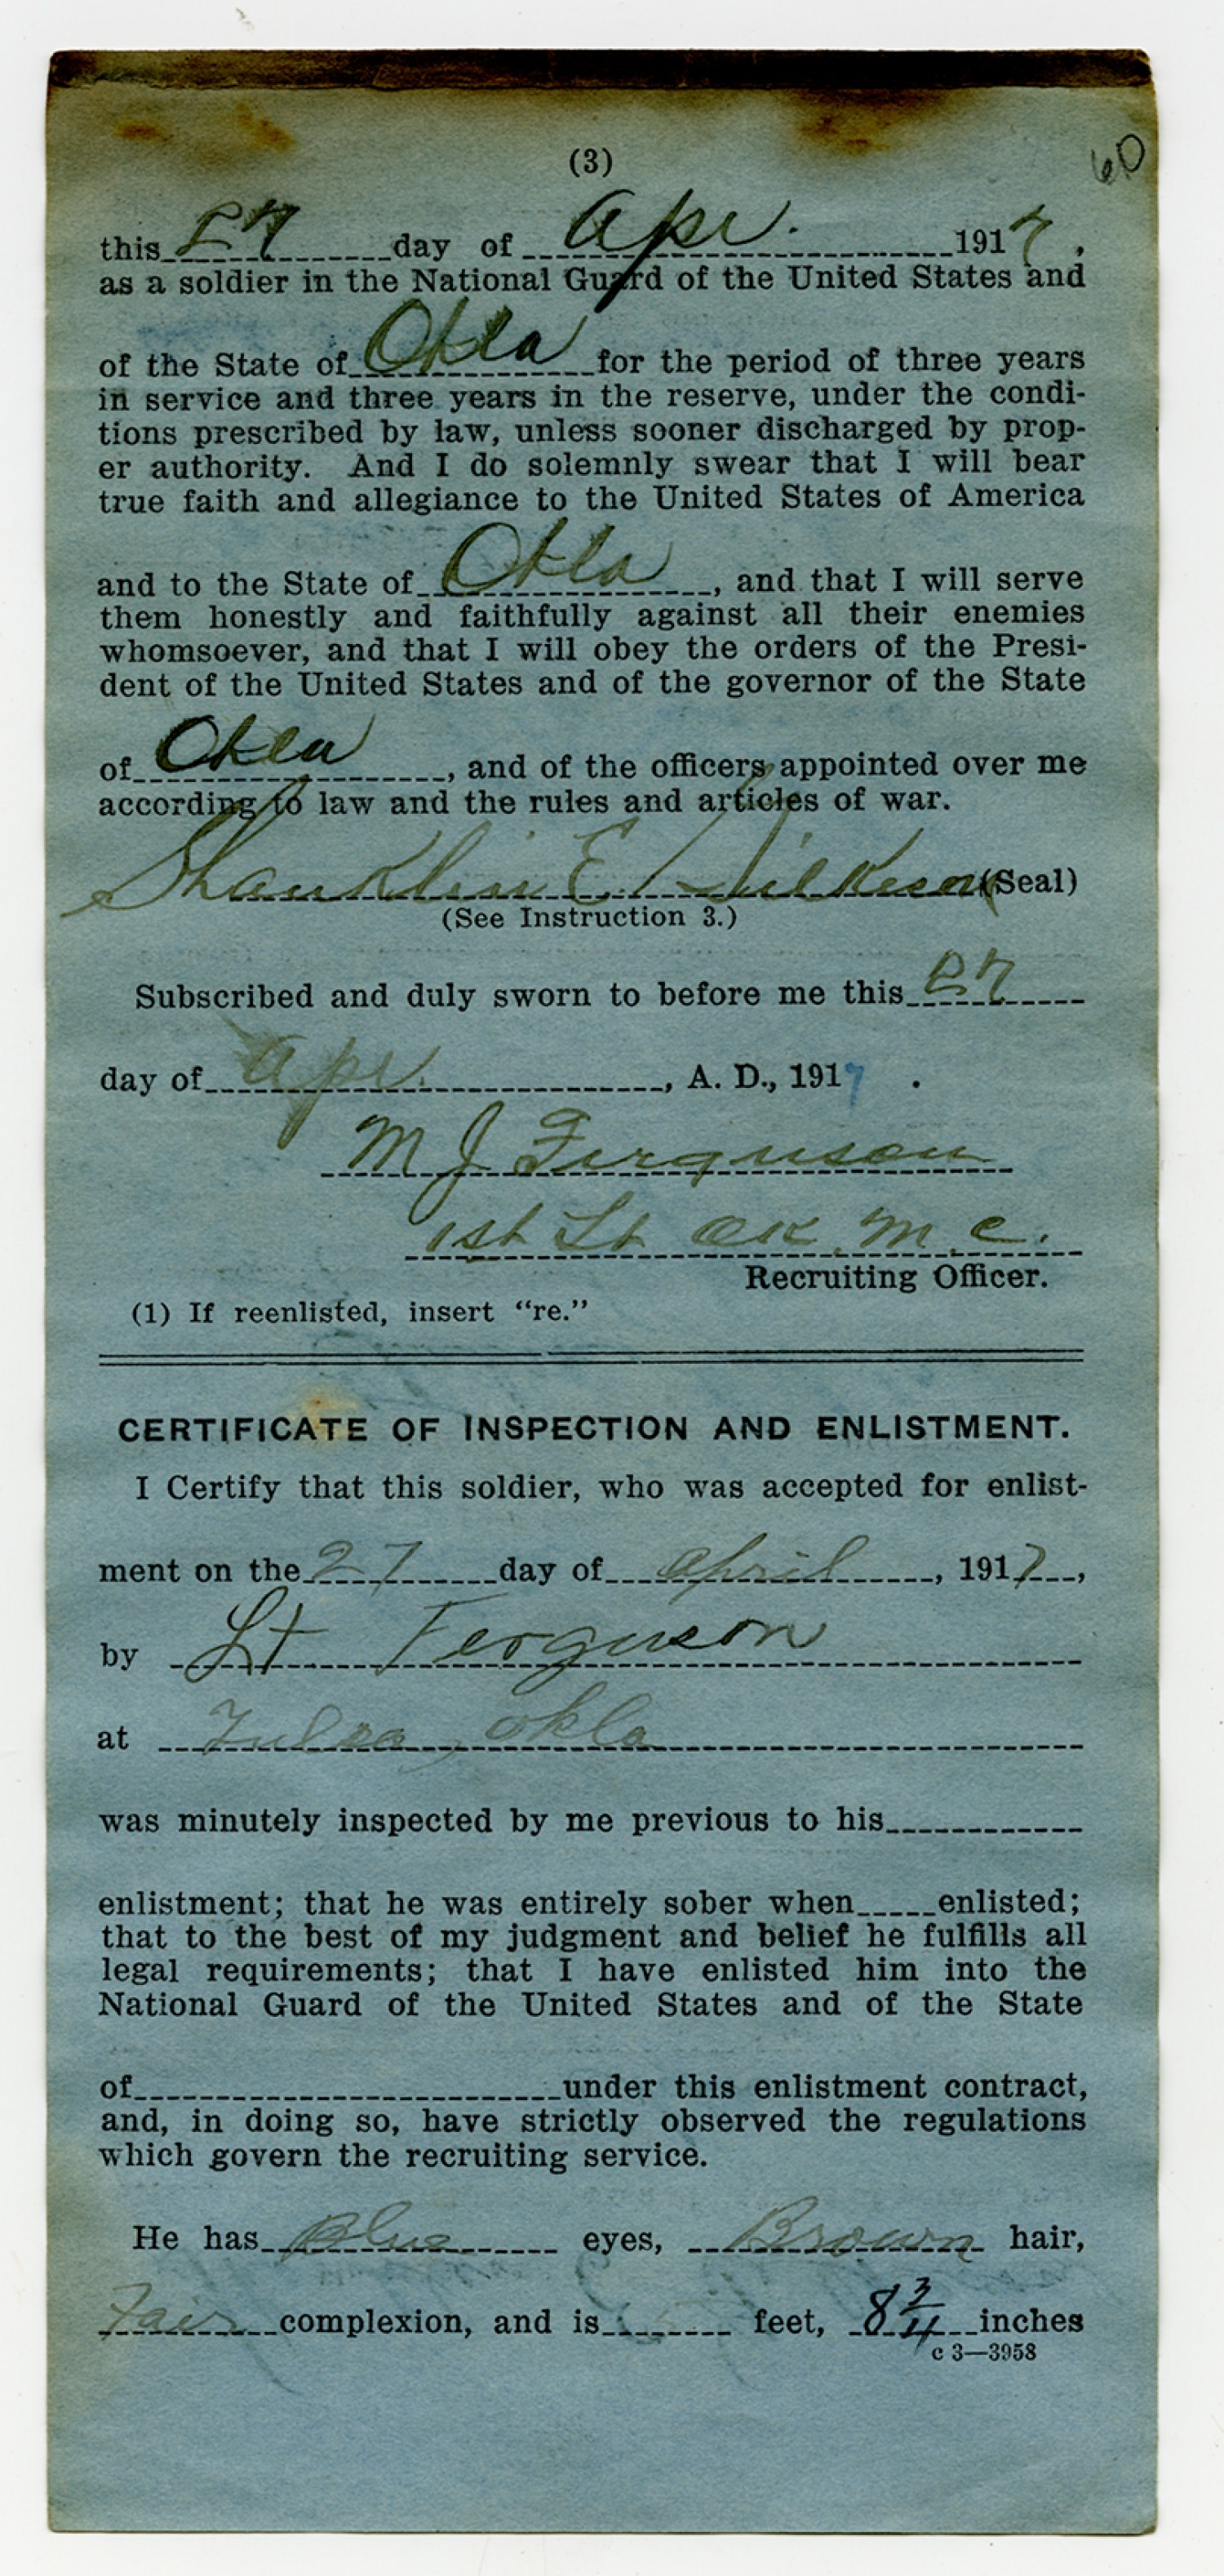 (3)
60
this 27 day of Apr. 1917,
as a soldier in the National Guard of the United States and
of the State of Okla for the period of three years
in service and three years in the reserve, under the condi-
tions prescribed by law, unless sooner discharged by prop-
er authority. And I do solemnly swear that I will bear
true faith and allegiance to the United States of America
and to the State of Okla, and that I will serve
them honestly and faithfully against all their enemies
whomsoever, and that I will obey the orders of the Presi-
dent of the United States and of the governor of the State
of Okla, and of the officers appointed over me
according to law and the rules and articles of war.
Shanklin E Wilkerson (Seal)
(See Instruction 3.)
Subscribed and duly sworn to before me this 27
day of Apr., A. D., 1917.
M J Ferguson
1st Lt OK. M. C.
Recruiting Officer.
(1) If reenlisted, insert "re."
CERTIFICATE OF INSPECTION AND ENLISTMENT.
I Certify that this soldier, who was accepted for enlist-
ment on the 27 day of April, 1917,
by Lt Ferguson
at Tulsa, Okla
was minutely inspected by me previous to his
enlistment; that he was entirely sober when enlisted;
that to the best of my judgment and belief he fulfills all
legal requirements; that I have enlisted him into the
National Guard of the United States and of the State
of under this enlistment contract,
and, in doing so, have strictly observed the regulations
which govern the recruiting service.
He has Blue eyes, Brown hair,
Fair complexion, and is feet, 8 3/4 inches
c 3—3958